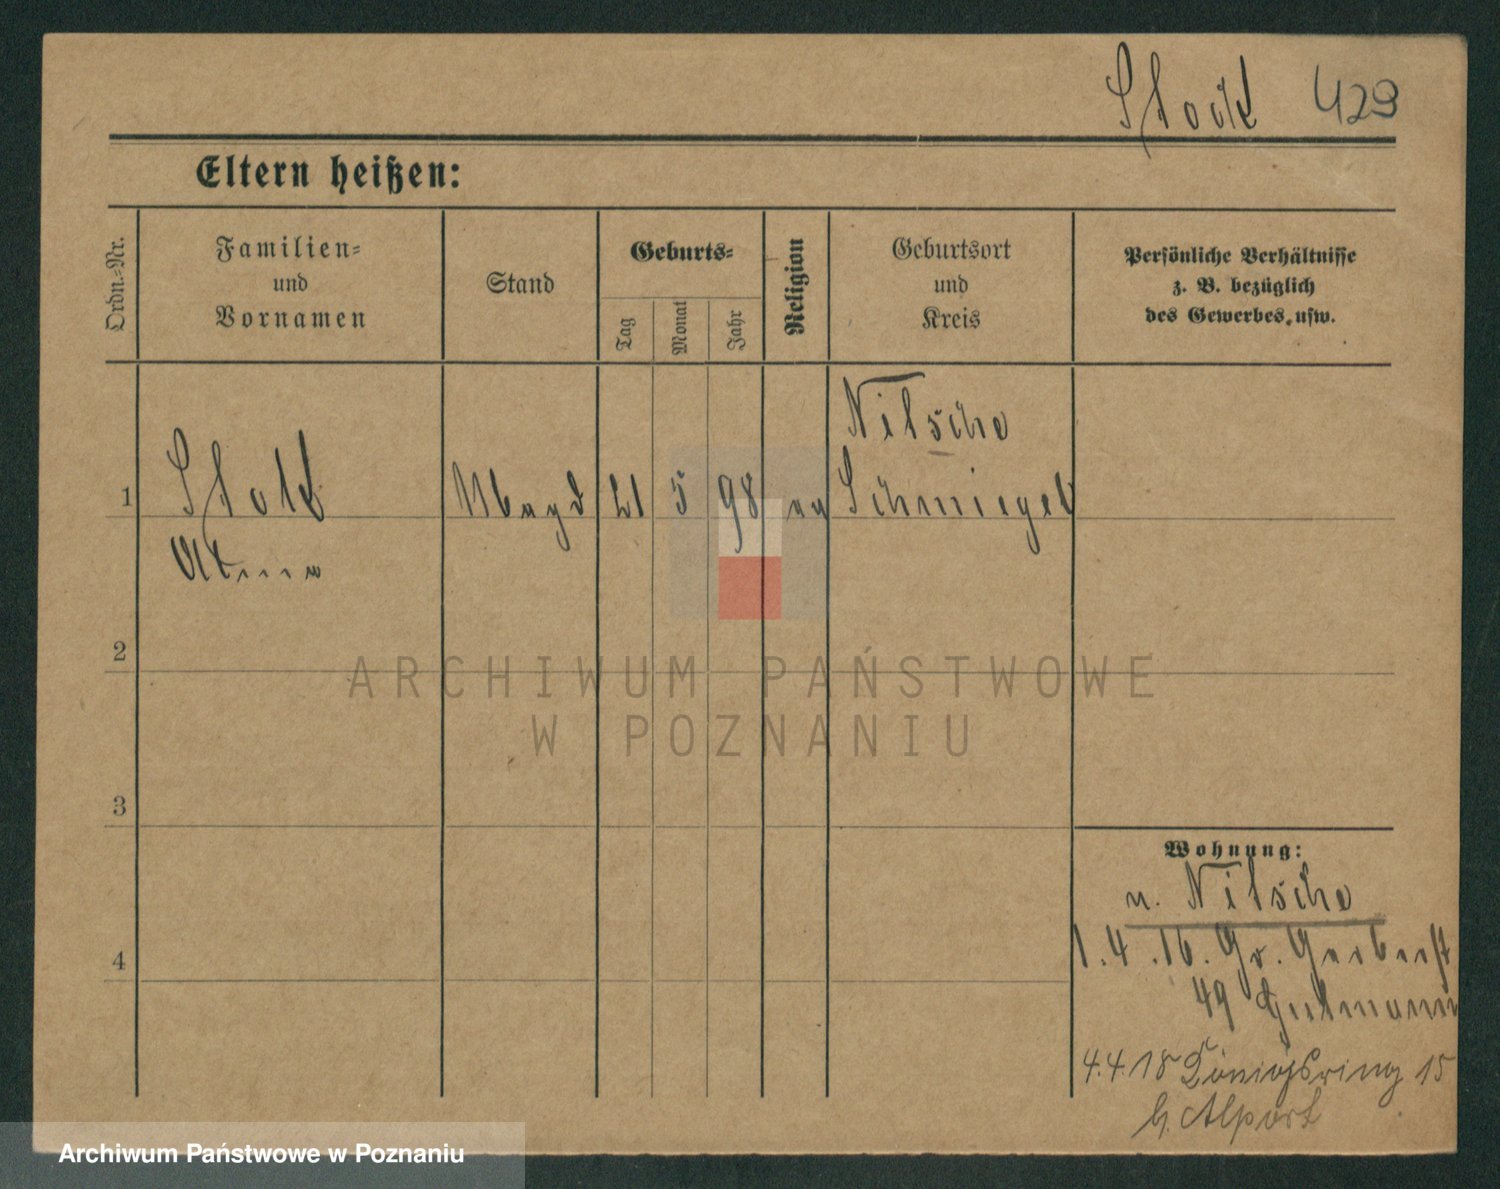 Stock 429
Eltern heißen:
Ordn.=Nr.
Familien=
und
Vornamen
Stand
Geburts=
Tag
Monat
Jahr
Religion
Geburtsort
und
Kreis
Persönliche Verhältnisse
z. B. bezüglich
des Gewerbes, usw.
Nitsche
1 Magd 21 5 98 Schmiegel
2
3
4
Wohnung:
Nitsche
1.4.16. Gr. Gerberst
49 Gutmann
4.4.18 Königsring 15
b. Alport
ARCHIWUM PAŃSTWOWE
W POZNANIU
Archiwum Państwowe w Poznaniu